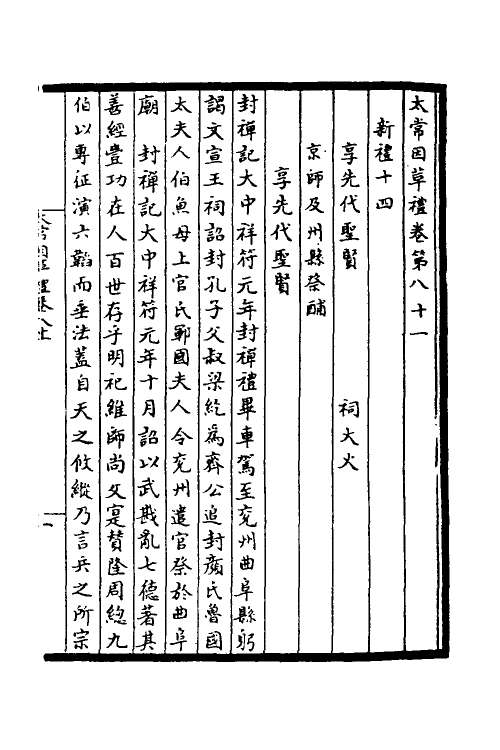 太常因革禮卷第八十一
新禮十四
享先代聖賢　祠大火
京師及州縣祭酺
享先代聖賢
封禪記大中祥符元年封禪禮畢車駕至兖州曲阜縣躬
謁文宣王祠詔封孔子父叔梁紇為齊公追封顔氏魯國
太夫人伯魚母上官氏鄆國夫人令兖州遣官祭於曲阜
廟　封禪記大中祥符元年十月詔以武戡亂七德著其
善經豐功在人百世存乎明祀維師尚父寔賛隆周緫九
伯以專征演六韜而垂法葢自天之攸縱乃言兵之所宗
太常因革禮卷八十一
一